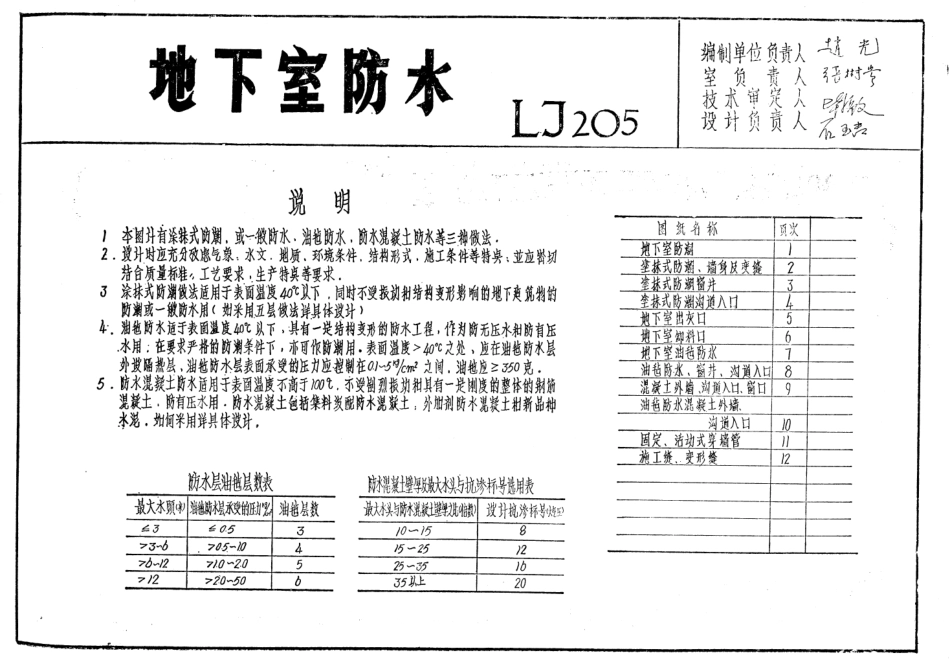 地下室防水
LJ205
编制单位负责人
室负责人
技术审定人
设计负责人
说明
1 本图计有涂抹式防潮,或一般防水.油毡防水,防水混凝土防水等三种做法.
2.设计时应充分改虑气象、水文、地质、环境条件、结构形式、施工条件等特矣、並应密切
结合质量标准,工艺要求,生产特矣等要求.
3 涂抹式防潮做法适用于表面温度40℃以下,同时不受振动和结构变形影响的地下建筑物的
防潮或一般防水用(如采用五层做法详具体设计)
4.油毡防水适于表面温度40℃以下,具有一定结构变形的防水工程,作为防无压水和防有压
水用;在要求严格的防潮条件下,亦可作防潮用.表面温度>40℃之处、应在油毡防水层
外设隔热层.油毡防水层表面承受的压力应控制在0.1~5㎏/cm²之间,油毡应≥350克.
5.防水混凝土防水适用于表面温度不高于100℃,不受剧烈振动和具有一定刚度的整体的钢筋
混凝土,防有压水用.防水混凝土包括集料级配防水混凝土;外加剂防水混凝土和新品种
水泥.如何采用详具体设计.
防水层油毡层数表
最大水头(m) 油毡防水层承受的压力 油毡层数
≤3 ≤05 3
>3-6 >05-10 4
>6-12 >10-20 5
>12 >20-50 6
防水混凝土壁厚及最大水头与抗渗标号选用表
最大水头与防水混凝土壁厚之比(倍数) 设计抗渗标号
10~15 8
15~25 12
25~35 16
35以上 20
图纸名称 页次
地下室防潮 1
塗抹式防潮、墙身及变缝 2
塗抹式防潮窗井 3
塗抹式防潮沟道入口 4
地下室出灰口 5
地下室卸料口 6
地下室油毡防水 7
油毡防水、窗井、沟道入口 8
混凝土外墙、沟道入口、窗口 9
油毡防水混凝土外墙、
沟道入口 10
固定、活动式穿墙管 11
施工缝、变形缝 12